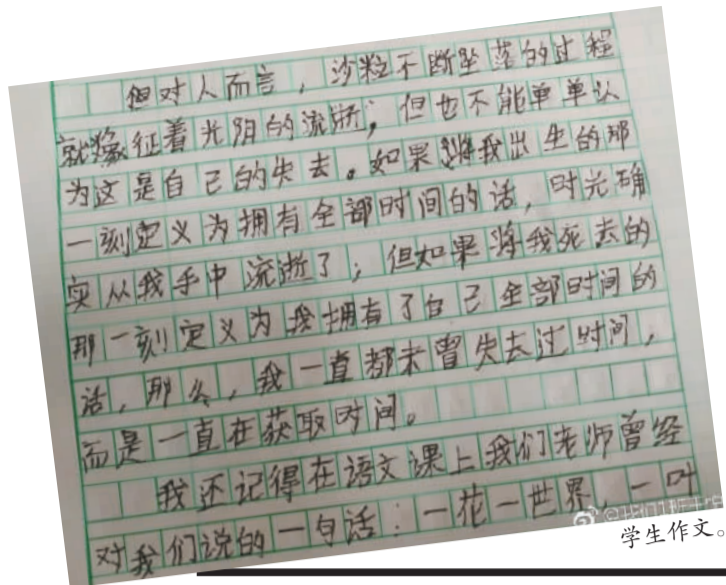 但对人而言，沙粒不断坠落的过程
就像征着光阴的流逝，但也不能单单认
为这是自己的失去。如果将我出生的那
一刻定义为拥有全部时间的话，时光确
实从我手中流逝了；但如果将我死去的
那一刻定义为我拥有了自己全部时间的
话，那么，我一直都未曾失去过时间，
而是一直在获取时间。
我还记得在语文课上我们老师曾经
对我们说的一句话：一花一世界，一叶
学生作文。